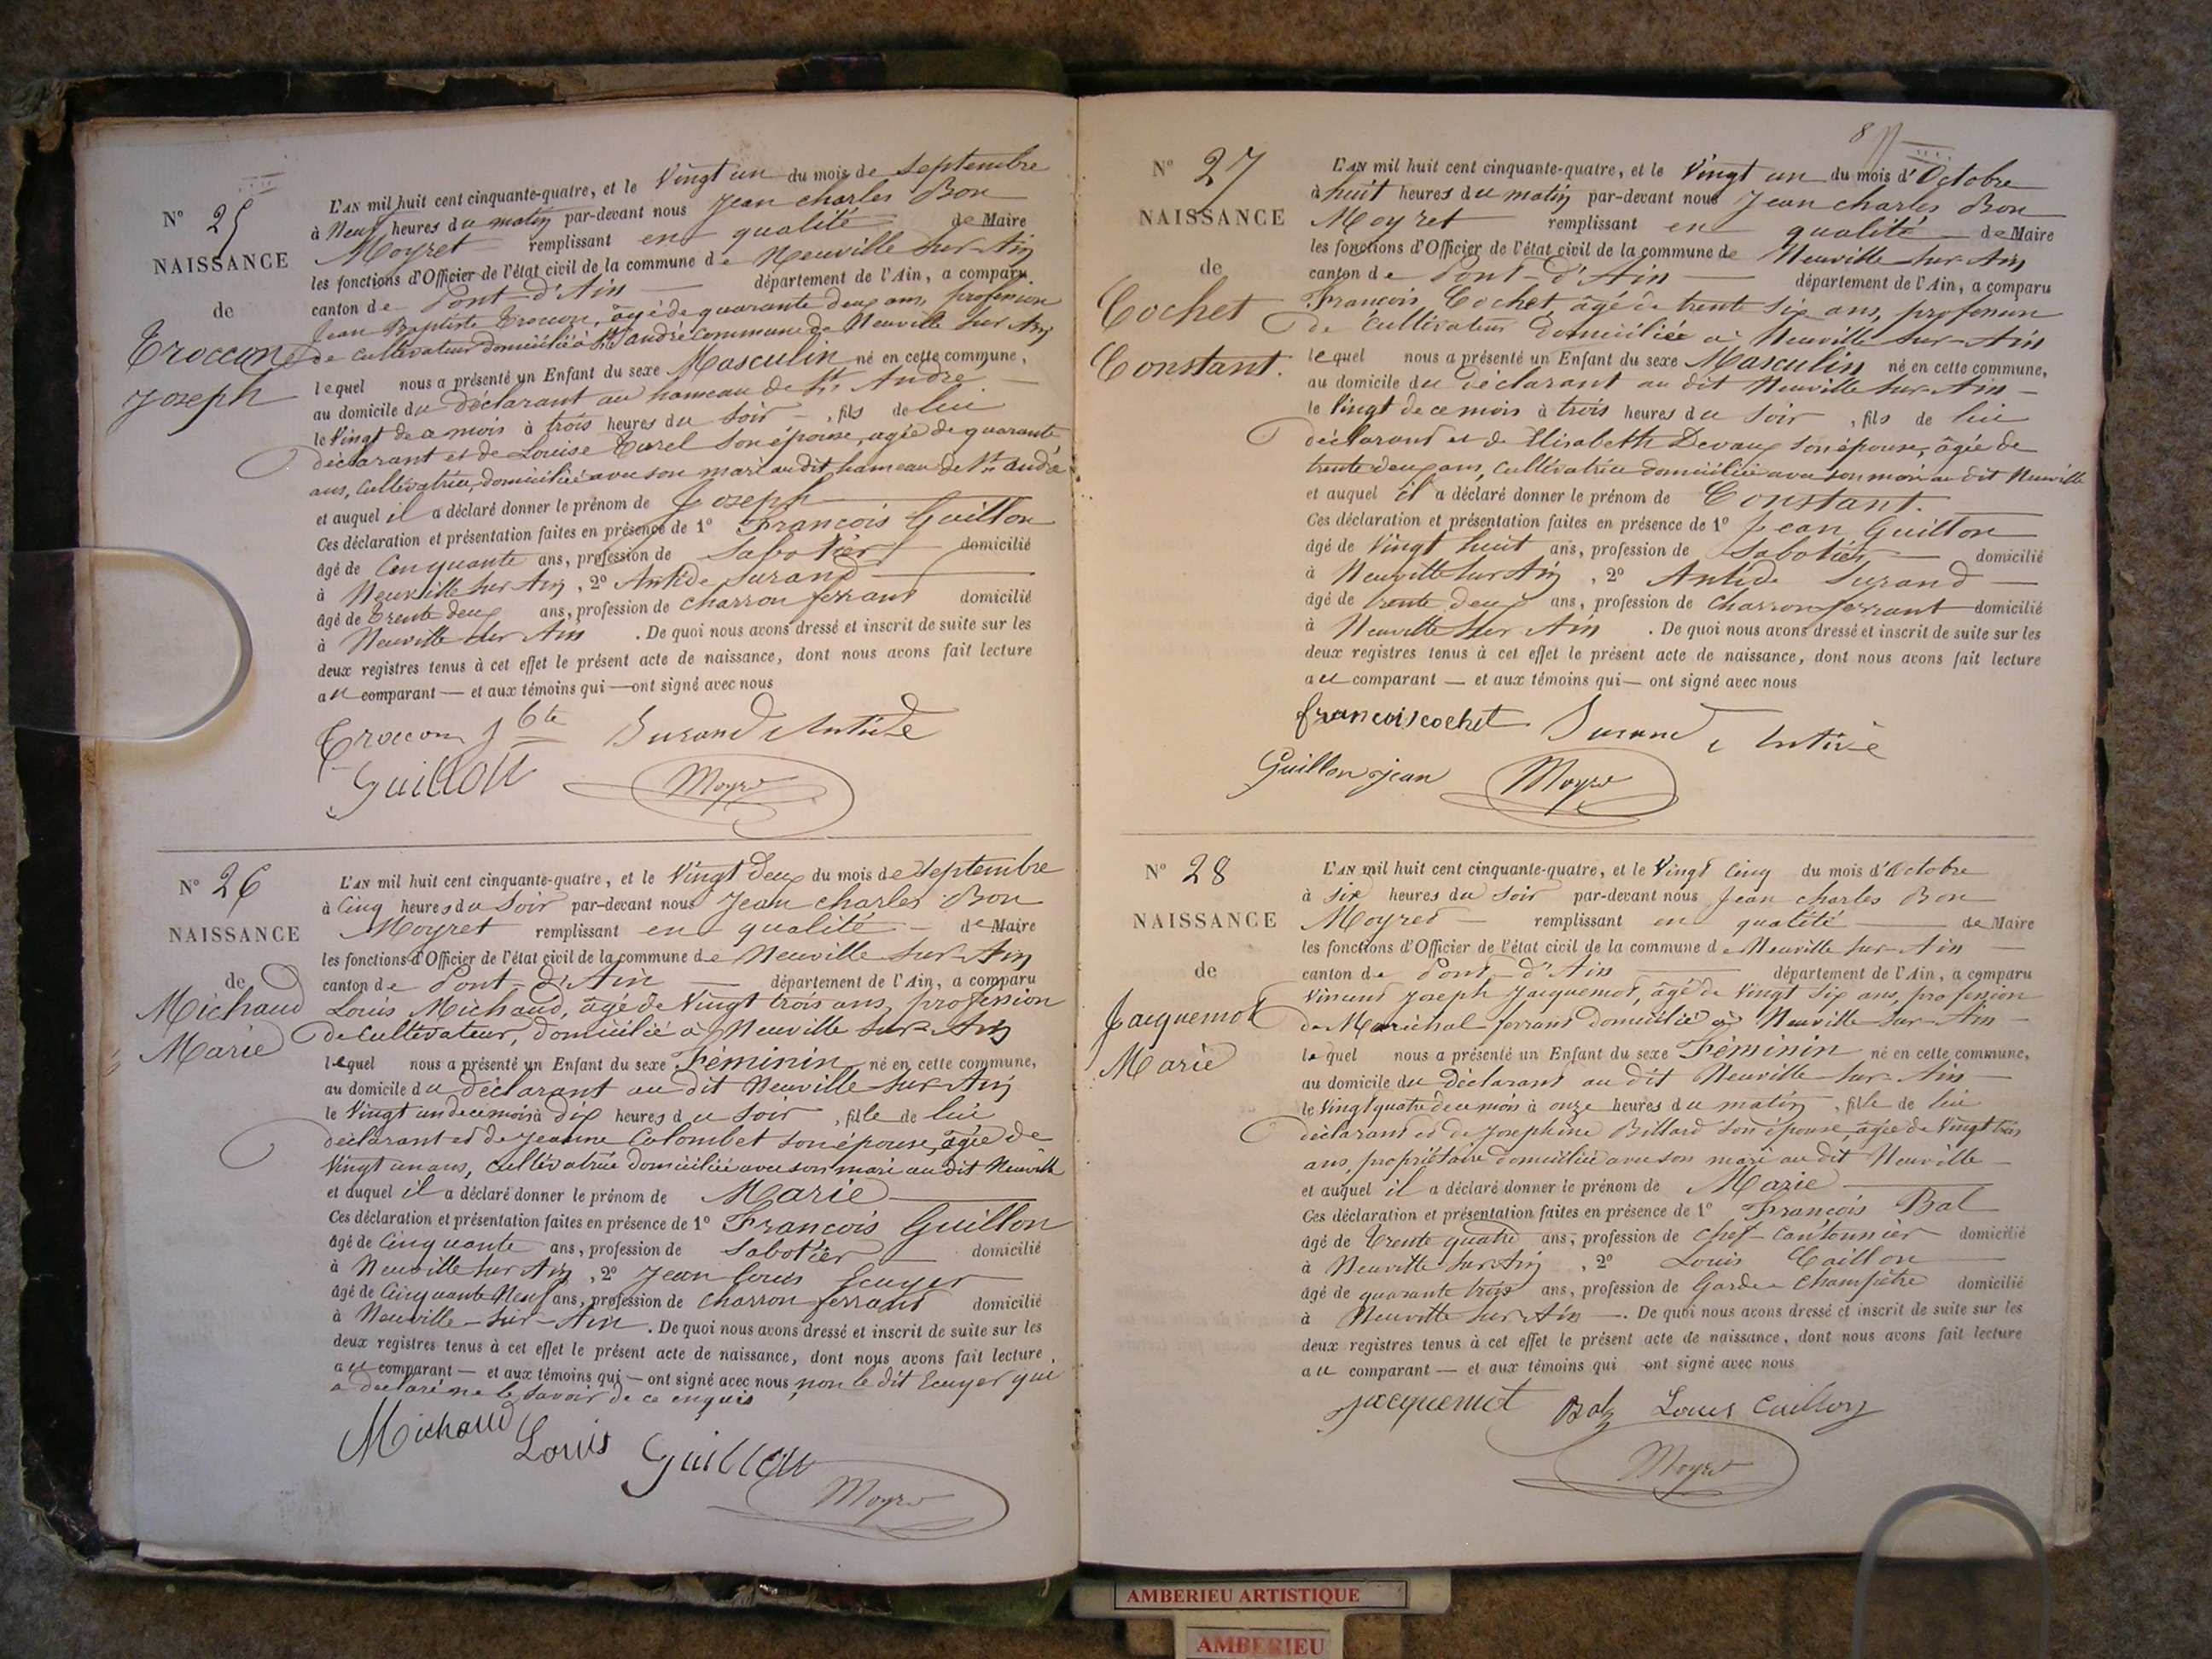 N° 25
NAISSANCE
de
Troccon
Joseph
L'AN mil huit cent cinquante-quatre, et le Vingt un du mois de Septembre
à Neuf heures du matin par-devant nous Jean Charles Bon
Moyret remplissant en qualité de Maire
les fonctions d'Officier de l'état civil de la commune de Neuville sur Ain
canton de Pont-d'Ain département de l'Ain, a comparu
Jean Baptiste Troccon, âgé de quarante deux ans, profession
de cultivateur domicilié à St André commune de Neuville sur Ain
lequel nous a présenté un Enfant du sexe Masculin né en cette commune,
au domicile du déclarant au hameau de St André
le Vingt de ce mois à trois heures du Soir, fils de lui
déclarant et de Louise Curel son épouse, agée de quarante
ans, Cultivatrice, domiciliée avec son mari au dit hameau de St André
et auquel il a déclaré donner le prénom de Joseph
Ces déclaration et présentation faites en présence de 1° François Guillon
âgé de Cinquante ans, profession de Sabotier domicilié
à Neuville sur Ain, 2° Antide Durand
âgé de Trente deux ans, profession de Charron ferrant domicilié
à Neuville sur Ain. De quoi nous avons dressé et inscrit de suite sur les
deux registres tenus à cet effet le présent acte de naissance, dont nous avons fait lecture
au comparant — et aux témoins qui — ont signé avec nous
Troccon J bte Durand Antide
Guillon Moyret
N° 26
NAISSANCE
de
Michaud
Marie
L'AN mil huit cent cinquante-quatre, et le Vingt Deux du mois de Septembre
à Cinq heures du Soir par-devant nous Jean Charles Bon
Moyret remplissant en qualité de Maire
les fonctions d'Officier de l'état civil de la commune de Neuville sur Ain
canton de Pont-d'Ain département de l'Ain, a comparu
Louis Michaud, âgé de Vingt trois ans, profession
de Cultivateur, domicilié à Neuville sur Ain
lequel nous a présenté un Enfant du sexe Féminin né en cette commune,
au domicile du déclarant au dit Neuville sur Ain
le Vingt un de ce mois à dix heures du Soir, fille de lui
déclarant et de Jeanne Colombet son épouse, agée de
Vingt un ans, Cultivatrice domiciliée avec son mari au dit Neuville
et auquel il a déclaré donner le prénom de Marie
Ces déclaration et présentation faites en présence de 1° François Guillon
âgé de Cinquante ans, profession de Sabotier domicilié
à Neuville sur Ain, 2° Jean Louis Ecuyer
âgé de Cinquante Neuf ans, profession de Charron ferrant domicilié
à Neuville-sur-Ain. De quoi nous avons dressé et inscrit de suite sur les
deux registres tenus à cet effet le présent acte de naissance, dont nous avons fait lecture
au comparant — et aux témoins qui — ont signé avec nous, non le dit Ecuyer qui
a déclaré ne le savoir de ce enquis
Michaud
Louis Guillon
Moyret
8
N° 27
NAISSANCE
de
Cochet
Constant.
L'AN mil huit cent cinquante-quatre, et le Vingt un du mois d'Octobre
à huit heures du matin par-devant nous Jean Charles Bon
Moyret remplissant en qualité de Maire
les fonctions d'Officier de l'état civil de la commune de Neuville sur Ain
canton de Pont-d'Ain département de l'Ain, a comparu
François Cochet, âgé de trente six ans, profession
de Cultivateur domiciliée à Neuville sur-Ain
lequel nous a présenté un Enfant du sexe Masculin né en cette commune,
au domicile du déclarant au dit Neuville sur Ain
le Vingt de ce mois à trois heures du Soir, fils de lui
déclarant et de Elisabeth Devaux son épouse, âgée de
trente deux ans, Cultivatrice domiciliée avec son mari au dit Neuville
et auquel il a déclaré donner le prénom de Constant.
Ces déclaration et présentation faites en présence de 1° Jean Guillon
âgé de Vingt huit ans, profession de Sabotier domicilié
à Neuville sur Ain, 2° Antide Durand
âgé de trente deux ans, profession de Charron-ferrant domicilié
à Neuville sur Ain. De quoi nous avons dressé et inscrit de suite sur les
deux registres tenus à cet effet le présent acte de naissance, dont nous avons fait lecture
au comparant — et aux témoins qui — ont signé avec nous
francois cochet Durand Antide
Guillon jean Moyret
N° 28
NAISSANCE
de
Jacquemot
Marie
L'AN mil huit cent cinquante-quatre, et le Vingt Cinq du mois d'Octobre
à six heures du Soir par-devant nous Jean Charles Bon
Moyret remplissant en qualité de Maire
les fonctions d'Officier de l'état civil de la commune de Neuville sur-Ain
canton de Pont-d'Ain département de l'Ain, a comparu
Vincent Joseph Jacquemot, âgé de Vingt Six ans, profession
de Maréchal ferrant domicilié à Neuville sur-Ain
lequel nous a présenté un Enfant du sexe Féminin né en cette commune,
au domicile du déclarant au dit Neuville sur-Ain
le Vingt quatre de ce mois à onze heures du matin, fille de lui
déclarant et de Josephine Billard son épouse, agée de Vingt trois
ans, propriétaire domiciliée avec son mari au dit Neuville
et auquel il a déclaré donner le prénom de Marie
Ces déclaration et présentation faites en présence de 1° François Bal
âgé de Trente quatre ans, profession de Chef-Cantonnier domicilié
à Neuville sur Ain, 2° Louis Caillon
âgé de quarante trois ans, profession de Garde-Champêtre domicilié
à Neuville sur Ain. De quoi nous avons dressé et inscrit de suite sur les
deux registres tenus à cet effet le présent acte de naissance, dont nous avons fait lecture
au comparant — et aux témoins qui ont signé avec nous
jacquemot Bal Louis Caillon
Moyret
AMBERIEU ARTISTIQUE
AMBERIEU